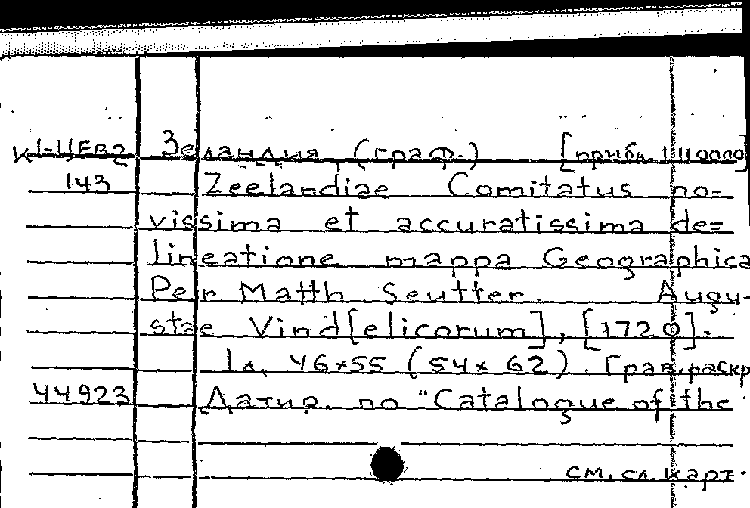 К1-ЦЕв2 Зеландия, (граф.) [прибл. 1:110000]
143 Zeelandiae Comitatus no=
vissima et accuratissima de=
lineatione mappa Geographica
Per Matth Seutter. Augu-
stae Vind[elicorum], [1720].
1 л. 46×55 (54×62). Грав. раскр
44923 Датир. по "Catalogue of the
см. сл. карт.